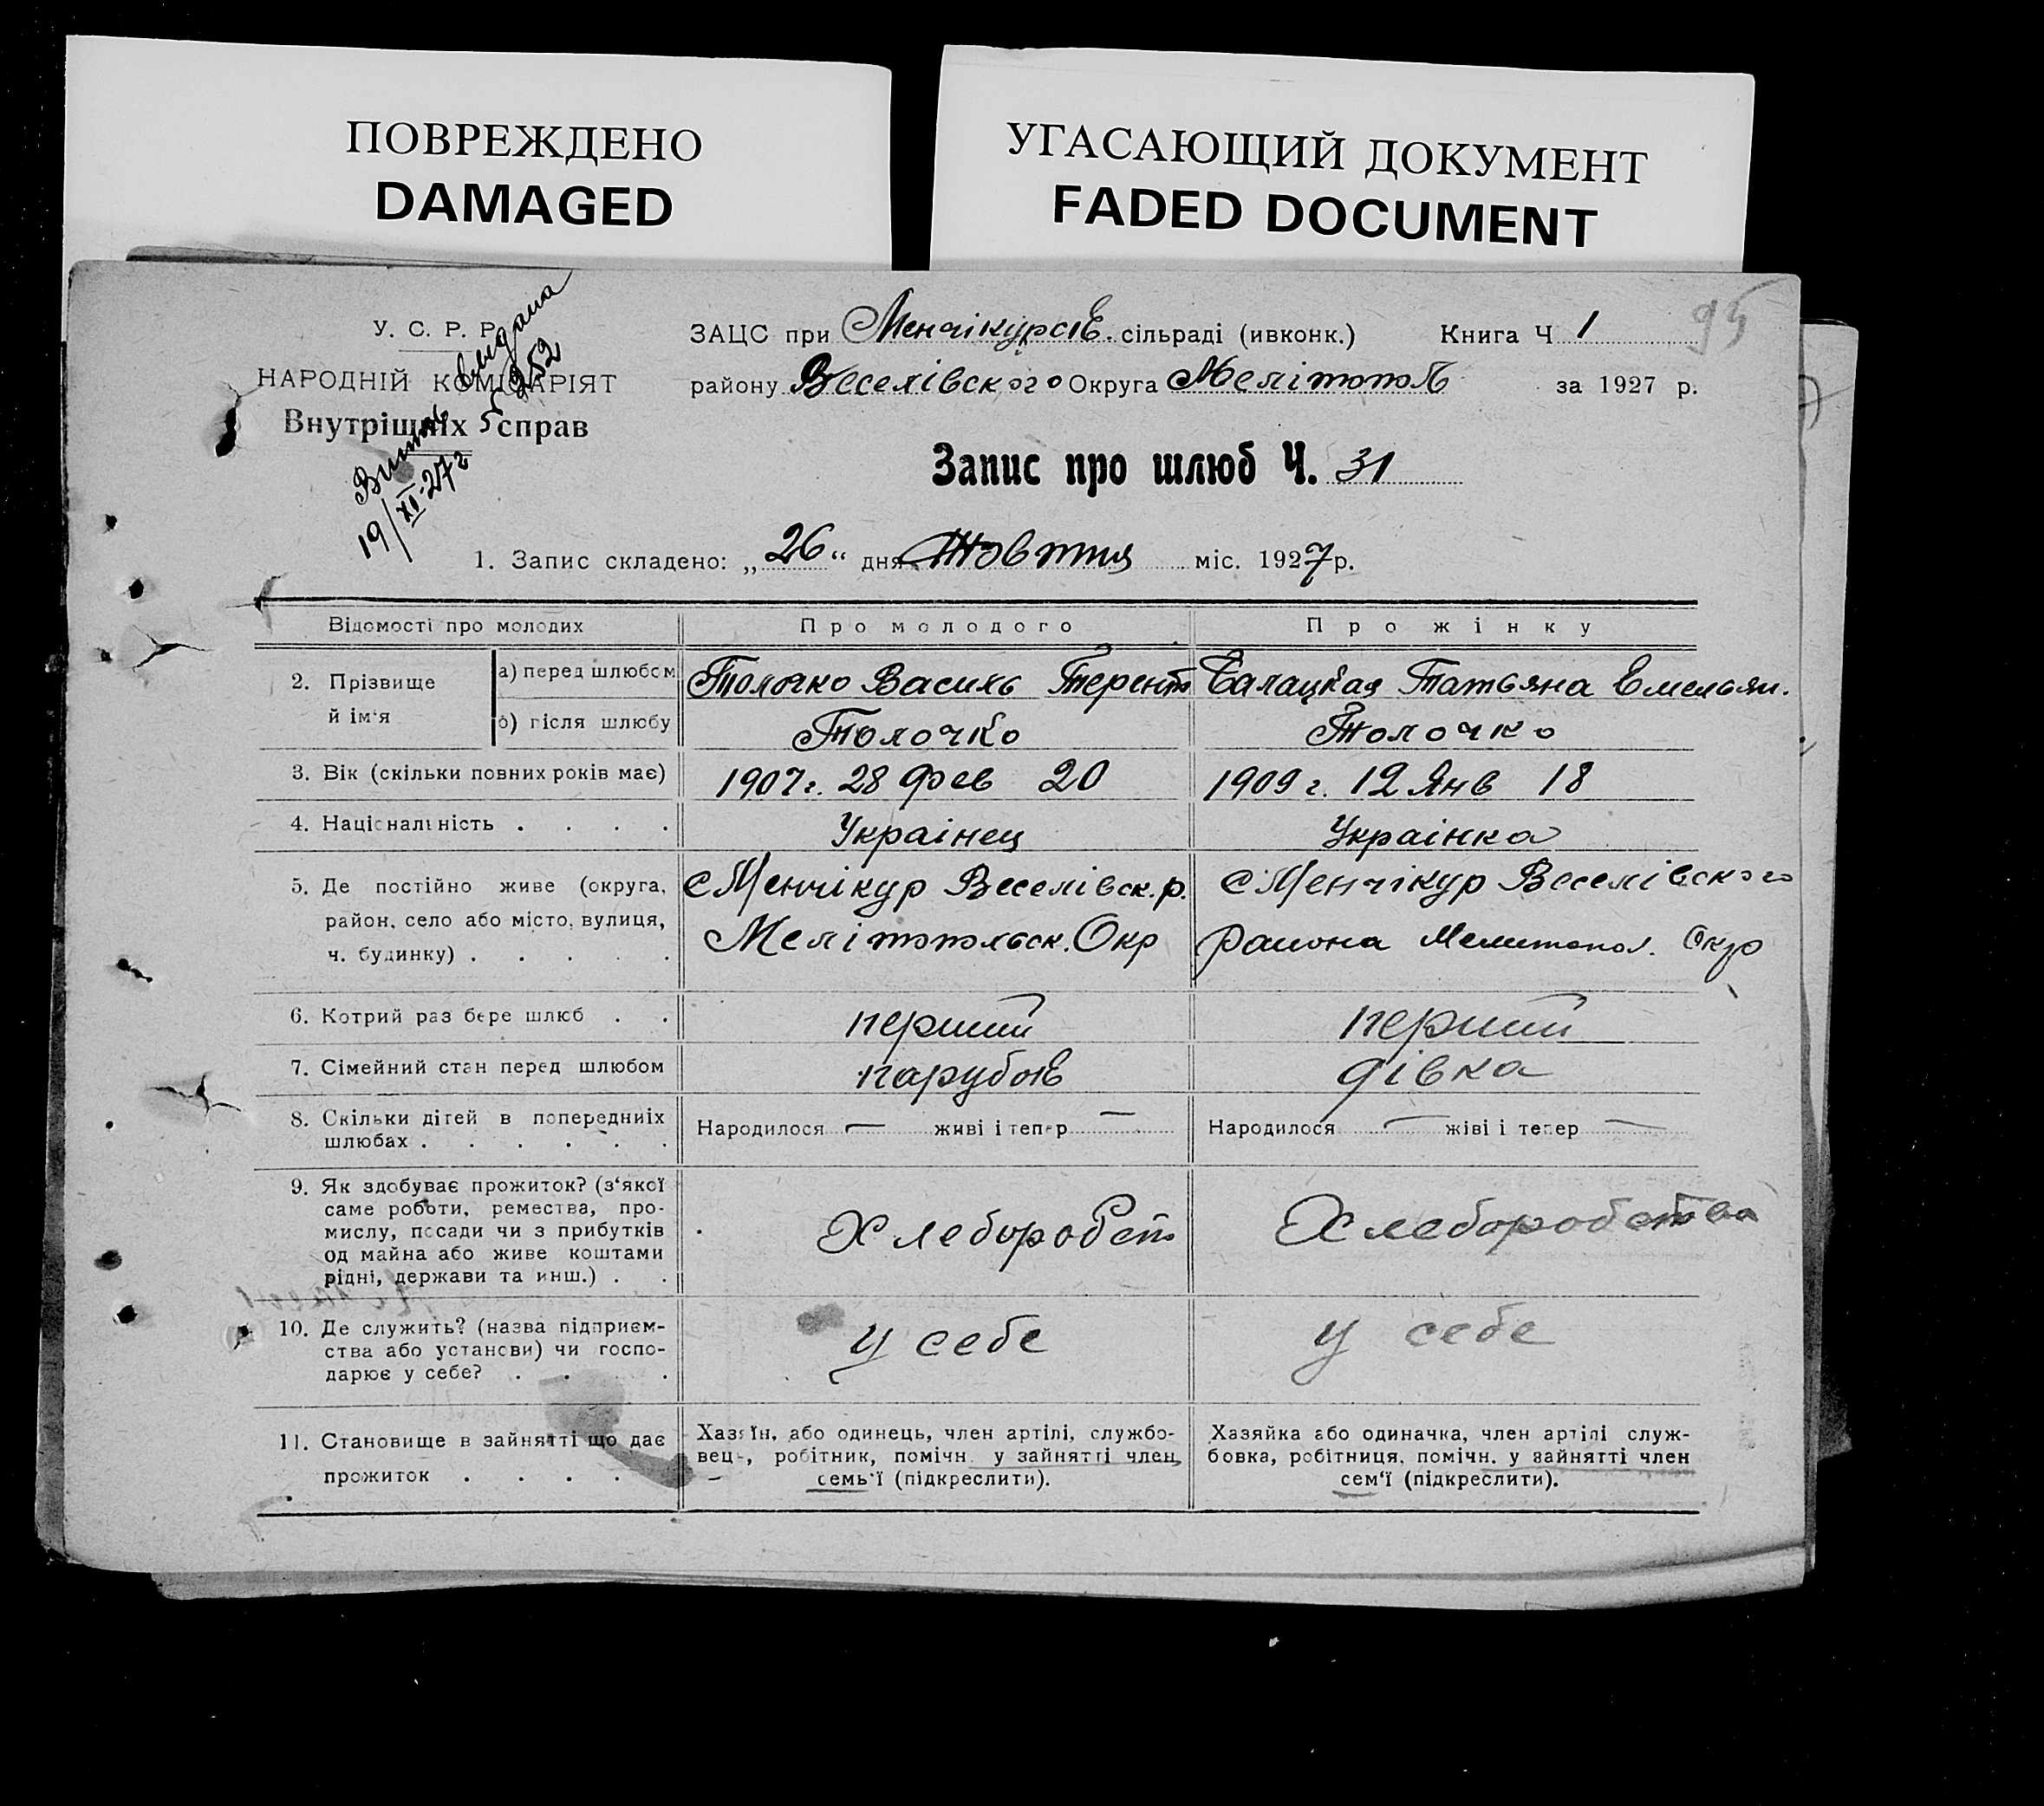 ПОВРЕЖДЕНО
DAMAGED
УГАСАЮЩИЙ ДОКУМЕНТ
FADED DOCUMENT
95
У. С. Р. Р.
НАРОДНІЙ КОМІСАРІЯТ
Внутрішніх справ
видана
19/XI-27 г
ЗАЦС при Менчікурськ. сільраді (ивконк.) Книга Ч 1
району Веселівского Округа Мелітополь за 1927 р.
Запис про шлюб Ч. 31
1. Запис складено: „26“ дня Жовтня міс. 1927 р.
Відомості про молодих
Про молодого
Про жінку
2. Прізвище й ім‘я
а) перед шлюбом
Толочко Василь Терент
Балацкая Татьяна Емельян.
б) після шлюбу
Толочко
Толочко
3. Вік (скільки повних років має)
1907 г. 28 фев 20
1909 г. 12 Янв 18
4. Національність . . . .
Украінец
Украінка
5. Де постійно живе (округа, район, село або місто, вулиця, ч. будинку) . . . . .
с Менчікур Веселівск. р.
Мелітопольск. Окр
с Менчікур Веселівского
района Мелитопол. Окр
6. Котрий раз бере шлюб . .
перший
перший
7. Сімейний стан перед шлюбом
парубок
дівка
8. Скільки дітей в попередниіх шлюбах . . . . . .
Народилося — живі і тепер —
Народилося — жіві і тепер —
9. Як здобуває прожиток? (з‘якої
саме роботи, ремества, про-
мислу, посади чи з прибутків
од майна або живе коштами
рідні, держави та инш.) . .
Хлеборобст
Хлеборобства
10. Де служить? (назва підприєм-
ства або установи) чи госпо-
дарює у себе? . . . .
у себе
у себе
11. Становище в зайнятті що дає
прожиток . . . .
Хазяїн, або одинець, член артілі, службо-
вець, робітник, помічн. у зайнятті член
семь‘ї (підкреслити).
Хазяйка або одиначка, член артілі служ-
бовка, робітниця, помічн. у зайнятті член
сем‘ї (підкреслити).